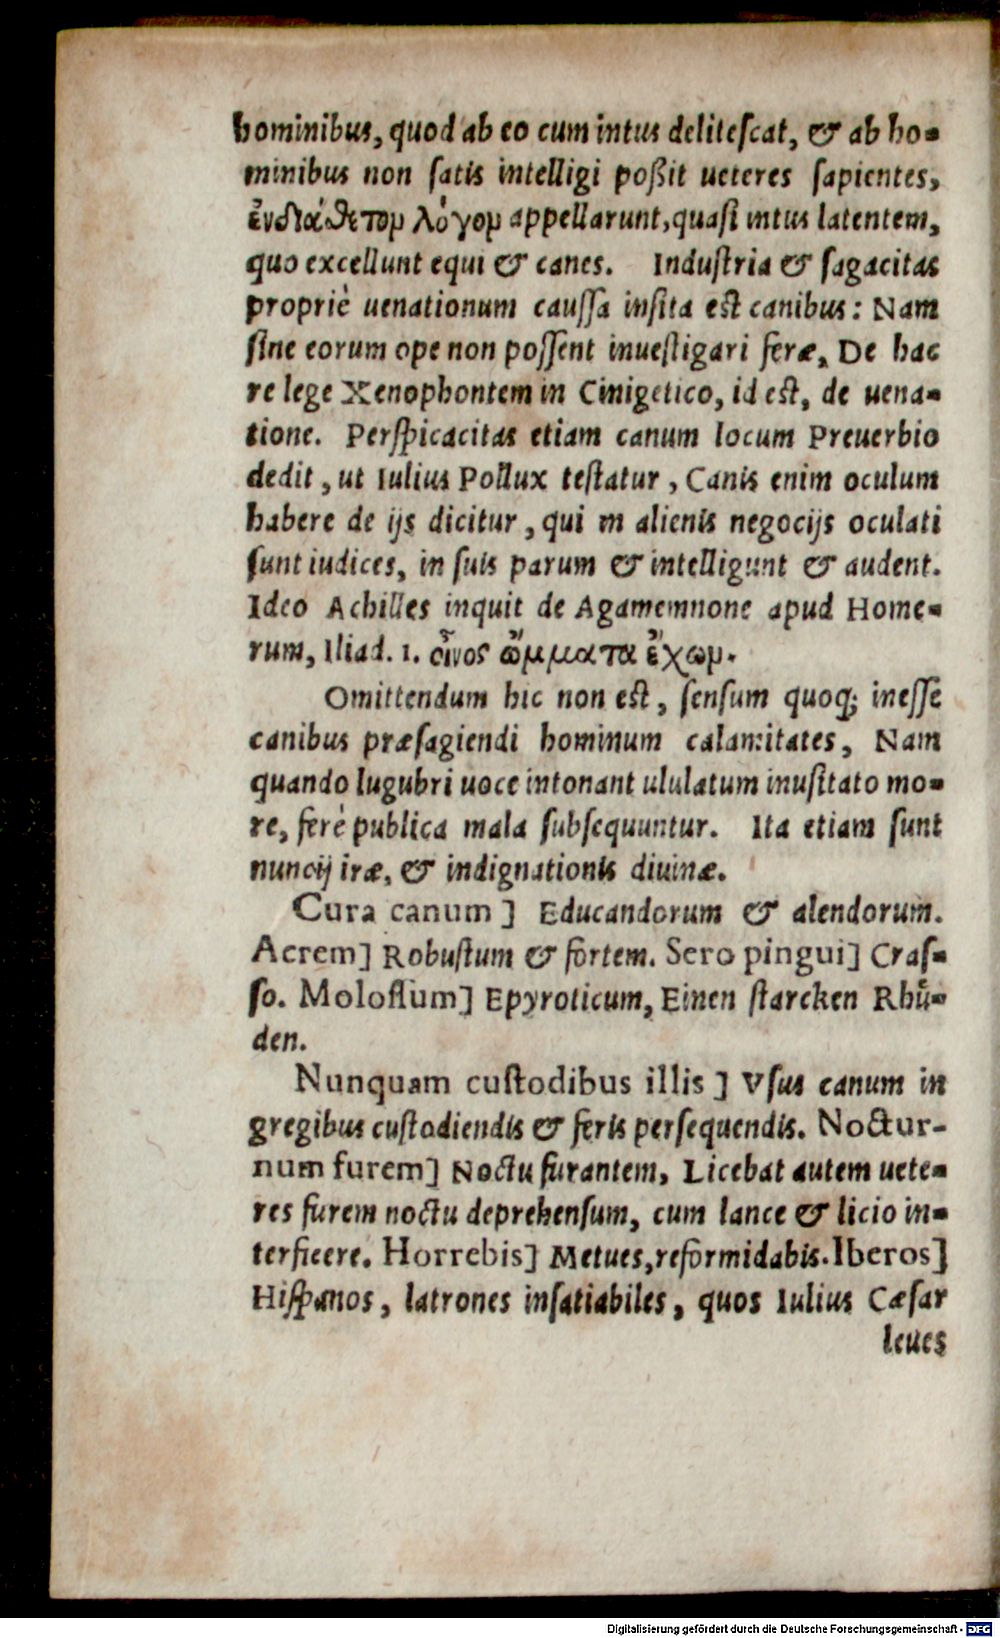 hominibus, quod ab eo cum intus deliteſcat, & ab ho-
minibus non ſatis intelligi poßit ueteres ſapientes,
ἐνδιάθετομ λόγομ appellarunt, quaſi intus latentem,
quo excellunt equi & canes. Induſtria & ſagacitas
propriè uenationum cauſſa inſita est canibus: Nam
ſine eorum ope non poſſent inueſtigari feræ, De hac
re lege Xenophontem in Cinigetico, id est, de uena-
tione. Perſpicacitas etiam canum locum Preuerbio
dedit, ut Iulius Pollux teſtatur, Canis enim oculum
habere de ijs dicitur, qui in alienis negocijs oculati
ſunt iudices, in ſuis parum & intelligunt & audent.
Ideo Achilles inquit de Agamemnone apud Home-
rum, Iliad. 1. οἶνος ὤμματα ἔχωμ.
Omittendum hic non est, ſenſum quoq; ineſſe
canibus præſagiendi hominum calamitates, Nam
quando lugubri uoce intonant ululatum inuſitato mo-
re, ferè publica mala ſubſequuntur. Ita etiam ſunt
nuncij iræ, & indignationis diuinæ.
Cura canum] Educandorum & alendorum.
Acrem] Robuſtum & fortem. Sero pingui] Craſ-
ſo. Moloſſum] Epyroticum, Einen ſtarcken Rhuͤ-
den.
Nunquam cuſtodibus illis] Vſus canum in
gregibus cuſtodiendis & feris perſequendis. Noctur-
num furem] Noctu furantem, Licebat autem uete-
res furem noctu deprehenſum, cum lance & licio in-
terficere. Horrebis] Metues, reformidabis. Iberos]
Hiſpanos, latrones inſatiabiles, quos Iulius Cæſar
leues
Digitalisierung gefördert durch die Deutsche Forschungsgemeinschaft - DFG